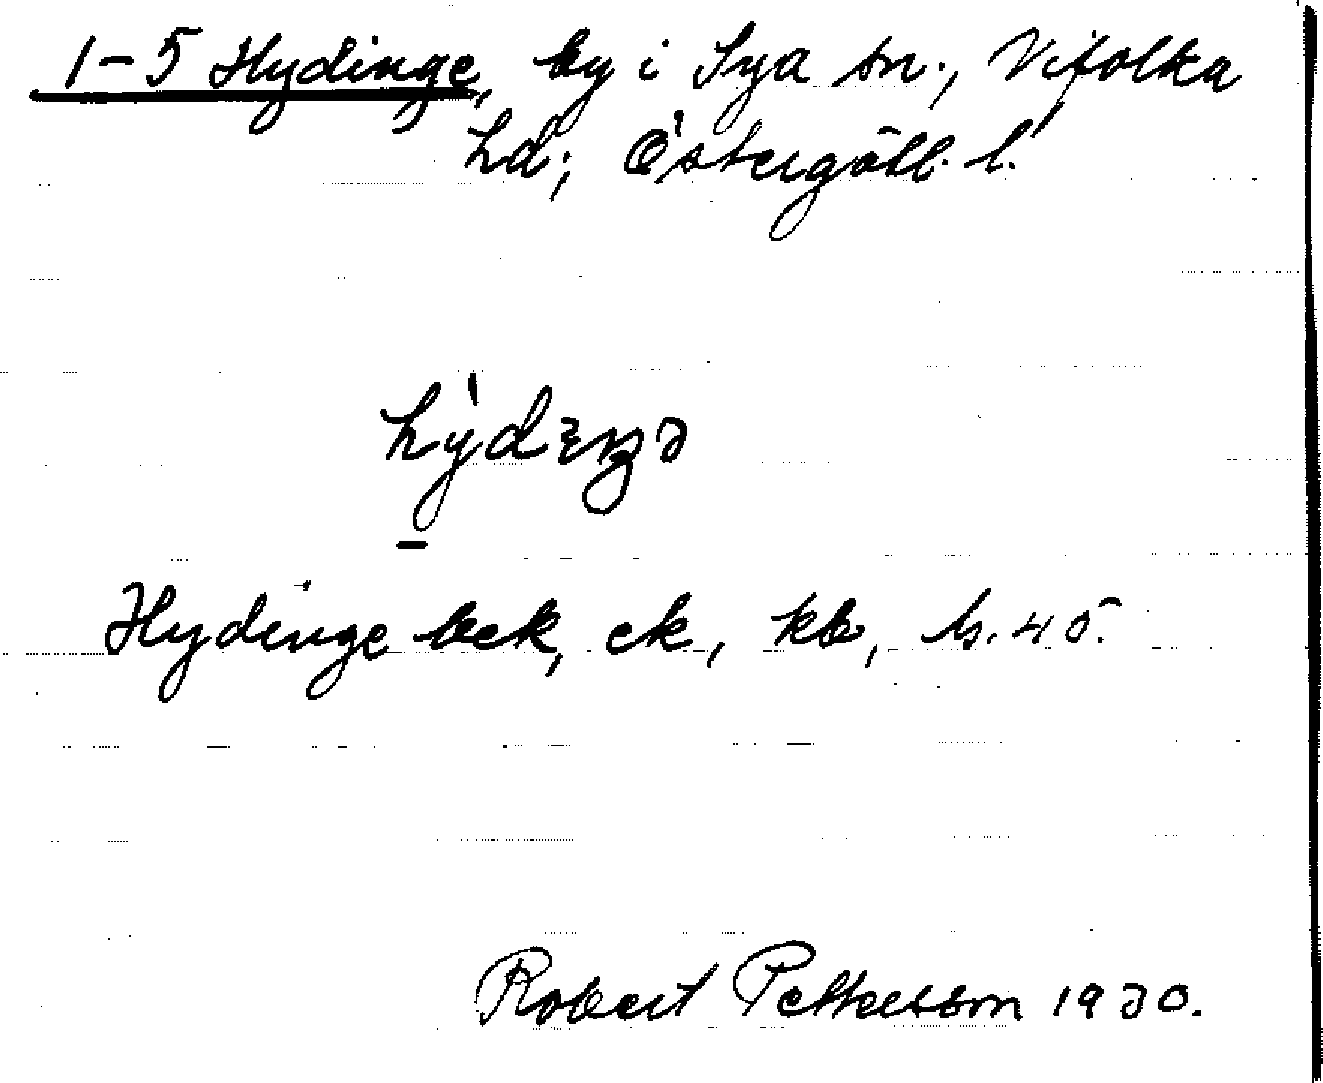 1-5 Hydinge, by i Sya sn., Vifolka
hd; Östergötl. l.
Hydinge bck, ck, kb, hs. 45.
Robert Pettersson 1930.